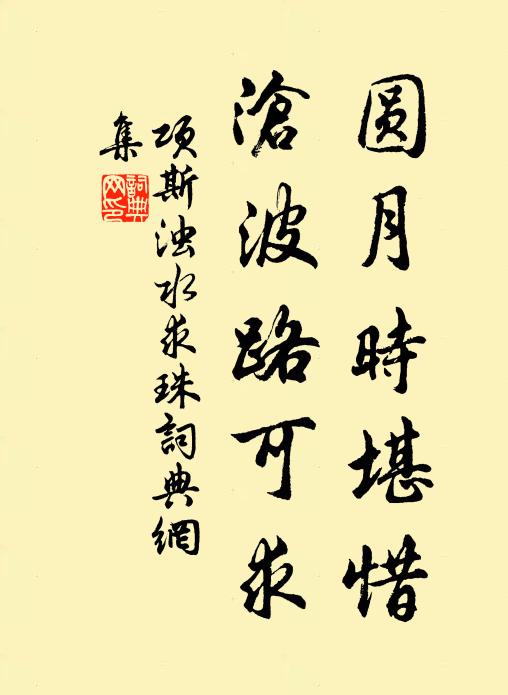 圆月時堪惜
滄波路可求
項斯浊水求珠詞典網
集
詞典網印